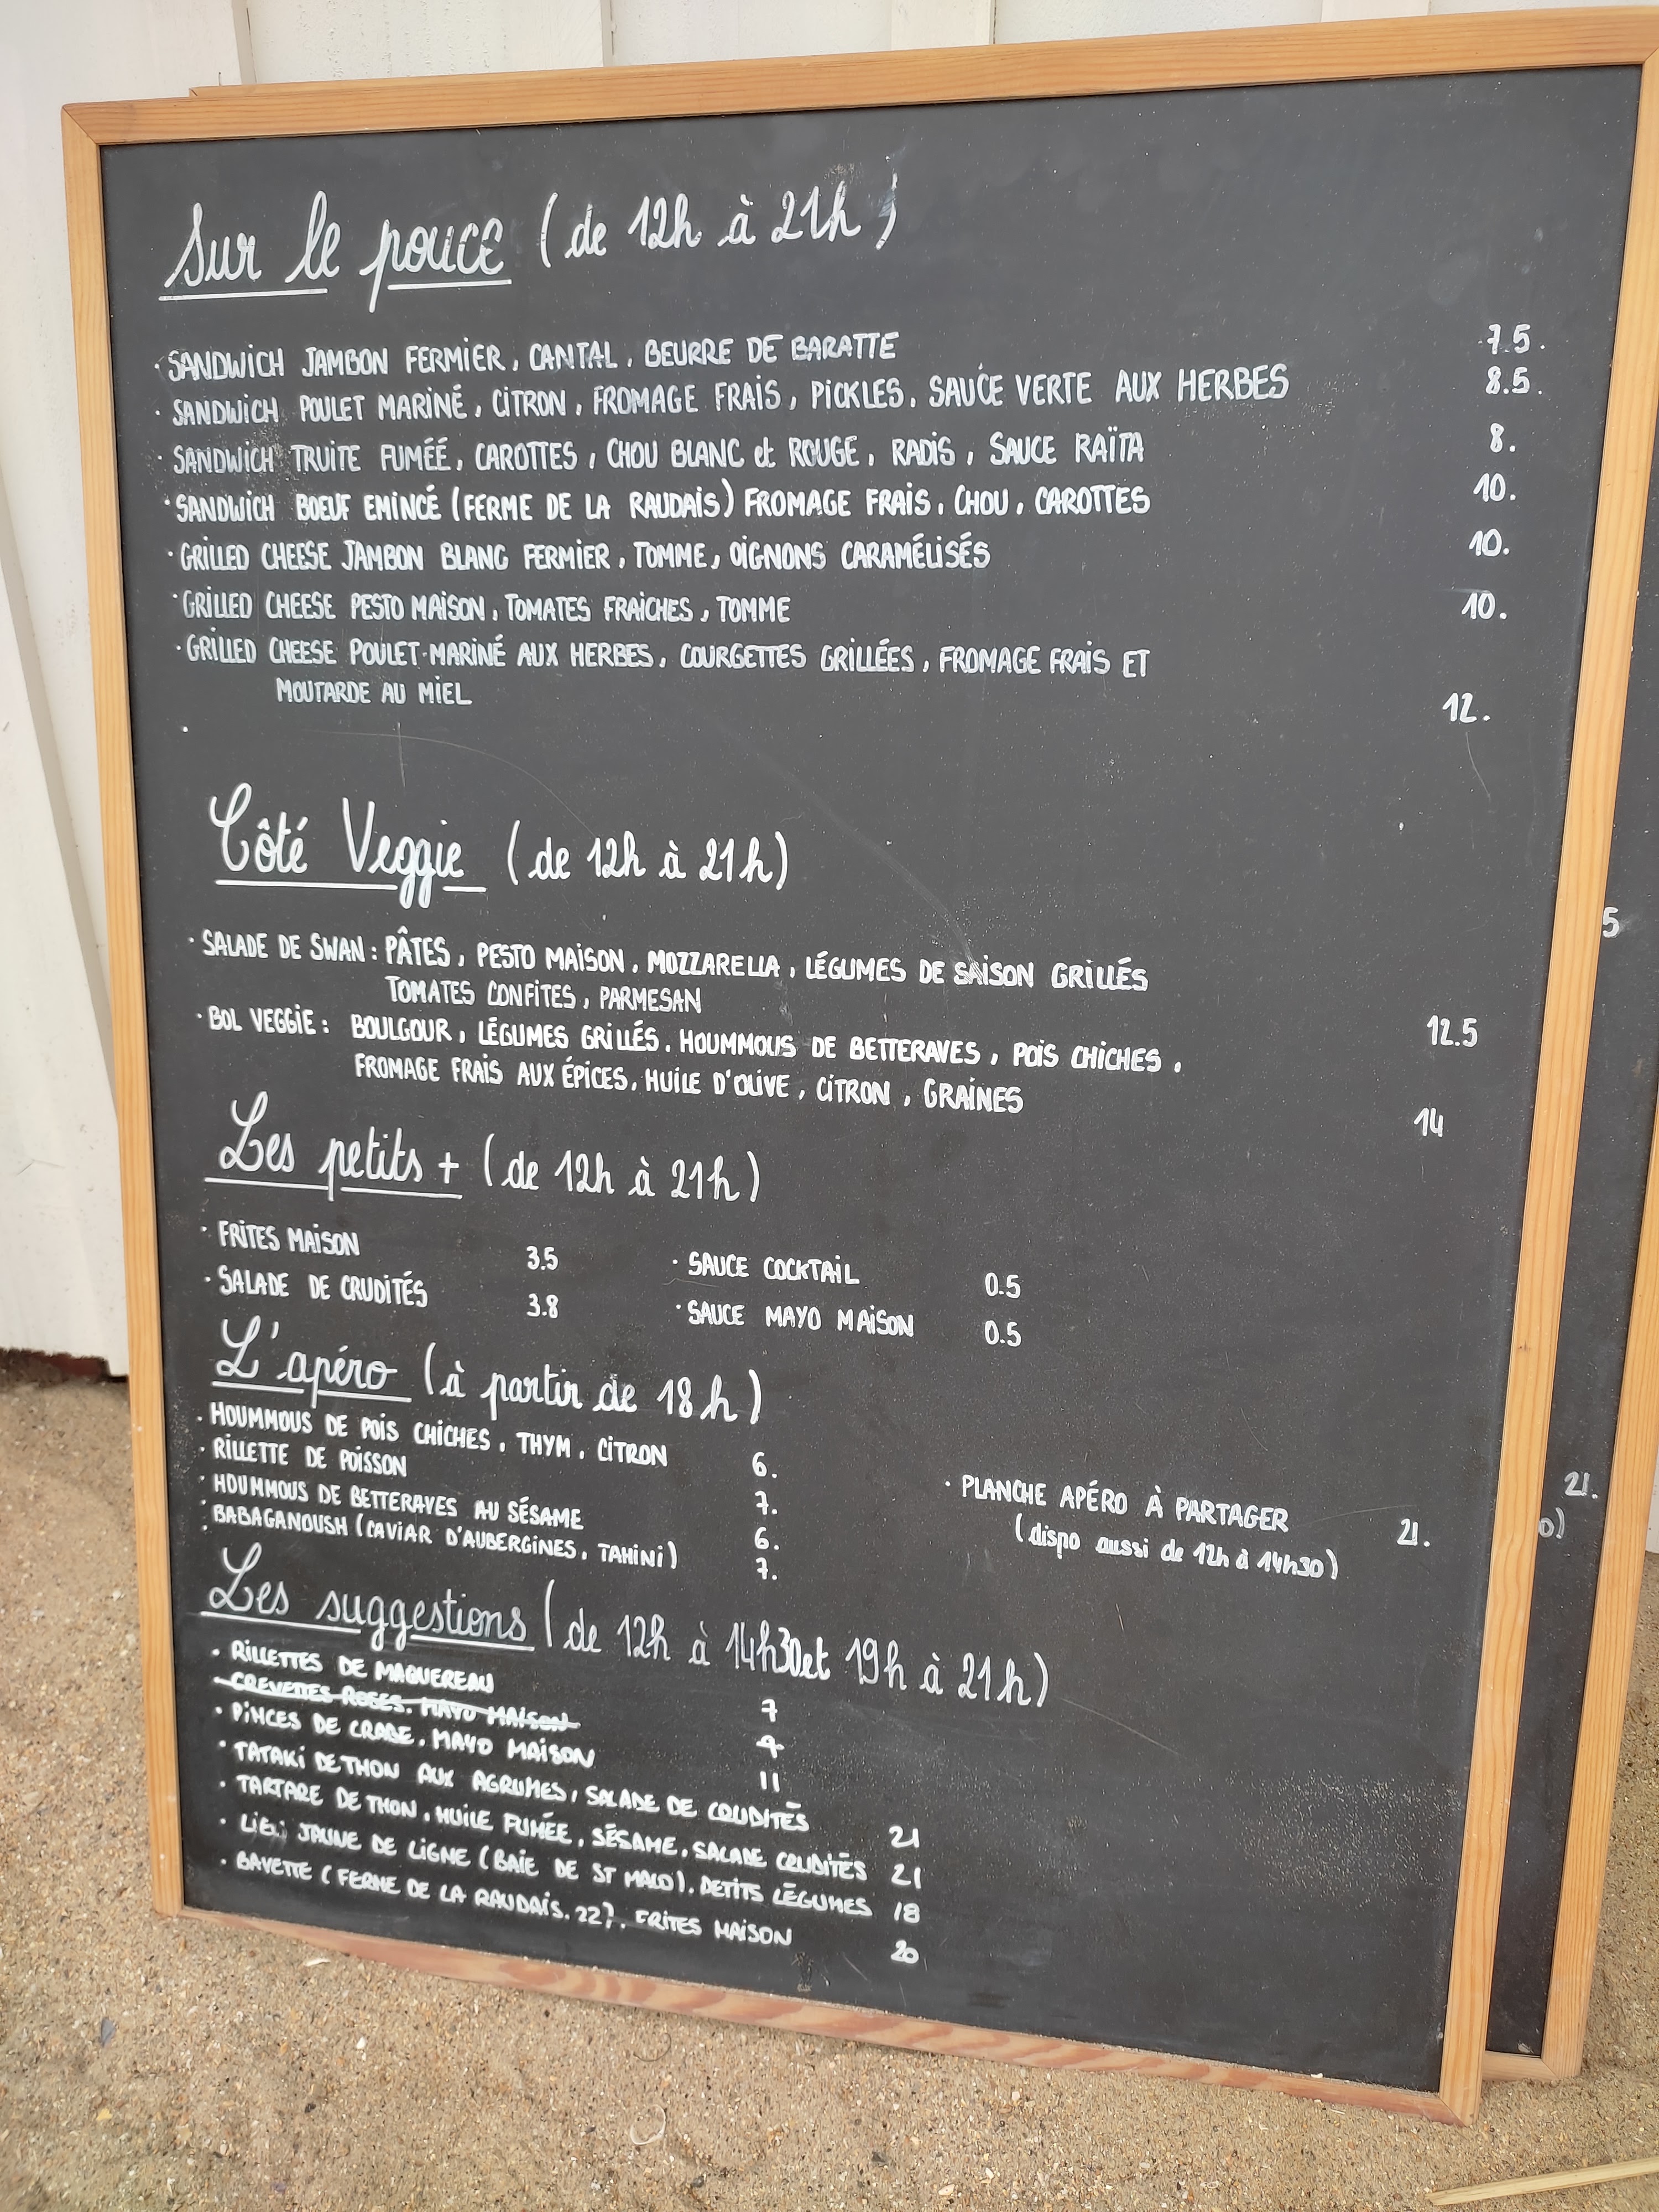 Sur le pouce (de 12h à 21h)
· SANDWICH JAMBON FERMIER, CANTAL, BEURRE DE BARATTE 7.5.
· SANDWICH POULET MARINÉ, CITRON, FROMAGE FRAIS, PICKLES, SAUCE VERTE AUX HERBES 8.5.
· SANDWICH TRUITE FUMÉE, CAROTTES, CHOU BLANC et ROUGE, RADIS, SAUCE RAÏTA 8.
· SANDWICH BOEUF EMINCÉ (FERME DE LA RAUDAIS) FROMAGE FRAIS, CHOU, CAROTTES 10.
· GRILLED CHEESE JAMBON BLANC FERMIER, TOMME, OIGNONS CARAMÉLISÉS 10.
· GRILLED CHEESE PESTO MAISON, TOMATES FRAICHES, TOMME 10.
· GRILLED CHEESE POULET MARINÉ AUX HERBES, COURGETTES GRILLÉES, FROMAGE FRAIS ET
MOUTARDE AU MIEL 12.
·
Côté Veggie (de 12h à 21h)
· SALADE DE SWAN : PÂTES, PESTO MAISON, MOZZARELLA, LÉGUMES DE SAISON GRILLÉS
TOMATES CONFITES, PARMESAN 12.5
· BOL VEGGIE : BOULGOUR, LÉGUMES GRILLÉS, HOUMMOUS DE BETTERAVES, POIS CHICHES,
FROMAGE FRAIS AUX ÉPICES, HUILE D'OLIVE, CITRON, GRAINES 14
Les petits + (de 12h à 21h)
· FRITES MAISON 3.5 · SAUCE COCKTAIL 0.5
· SALADE DE CRUDITÉS 3.8 · SAUCE MAYO MAISON 0.5
L'apéro (à partir de 18h)
· HOUMMOUS DE POIS CHICHES, THYM, CITRON 6.
· RILLETTE DE POISSON 7.
· HOUMMOUS DE BETTERAVES AU SÉSAME 6.
· BABAGANOUSH (CAVIAR D'AUBERGINES, TAHINI) 7.
· PLANCHE APÉRO À PARTAGER 21.
(dispo aussi de 12h à 14h30)
Les suggestions (de 12h à 14h30 et 19h à 21h)
· RILLETTES DE MAQUEREAU 7
CREVETTES ROSES, MAYO MAISON 9
· PINCES DE CRABE, MAYO MAISON 11
· TATAKI DE THON AUX AGRUMES, SALADE DE CRUDITÉS 21
· TARTARE DE THON, HUILE FUMÉE, SÉSAME, SALADE CRUDITÉS 21
· LIEU JAUNE DE LIGNE (BAIE DE ST MALO), PETITS LÉGUMES 18
· BAVETTE (FERME DE LA RAUDAIS. 22), FRITES MAISON 20
5
21.
o)